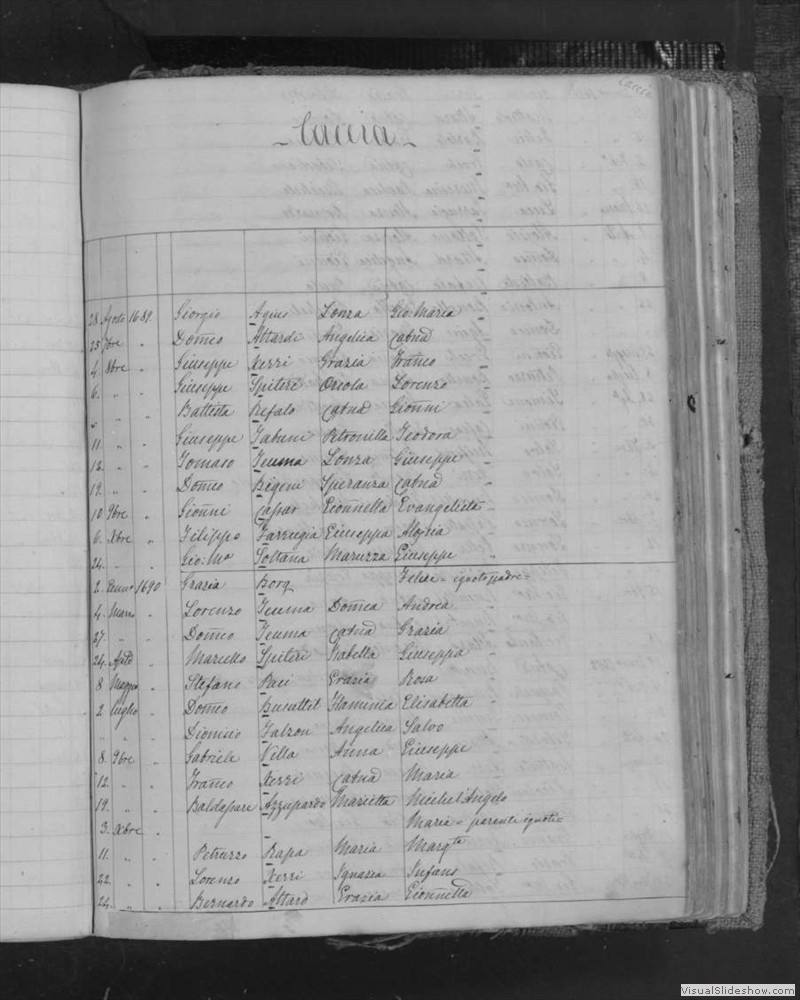 Caccia
- Caccia -
28. Agosto 1689. Giorgio Agius Lonza Gio: Maria
25 7bre " Domco Attardi Angelica Catnd
4. 8bre " Giuseppe Xerri Grazia Franco
6. " " Giuseppe Spiteri Oriola Lorenzo
" " " Battista Refalo Catnd Gionni
11. " " Giuseppe Zabuni Petronilla Teodora
12. " " Tomaso Teuma Lonza Giuseppe
19. " " Domco Bigeni Speranza Catnd
10. 9bre " Gionni Caspar Gionnella Evangelista
6. Xbre " Filippo Farrugia Giuseppa Aloysia
24. " " Gio: Ma Soltana Maruzza Giuseppe
2. Genn 1690 Grazia Borg Felice = ignoto padre =
4. Marzo " Lorenzo Teuma Domca Andrea
27. " " Domco Teuma Catnd Grazia
24. Aprile " Marcello Spiteri Isabella Giuseppa
8 Maggio " Stefano Paci Grazia Rosa
2 luglio " Domco Busuttil Flaminia Elisabetta
" " " Dionisio Falzon Angelica Salvo
8. 9bre " Gabriele Vella Anna Giuseppe
12. " " Franco Xerri Catnd Maria
19. " " Baldassare Azzupardo Marietta Michel'Angelo
3. Xbre " Maria = parenti ignoti =
11. " " Petruzzo Rapa Maria Margta
22. " " Lorenzo Xerri Ignazia Infans
24. " " Bernardo Attard Grazia Gionnella
VisualSlideshow.com